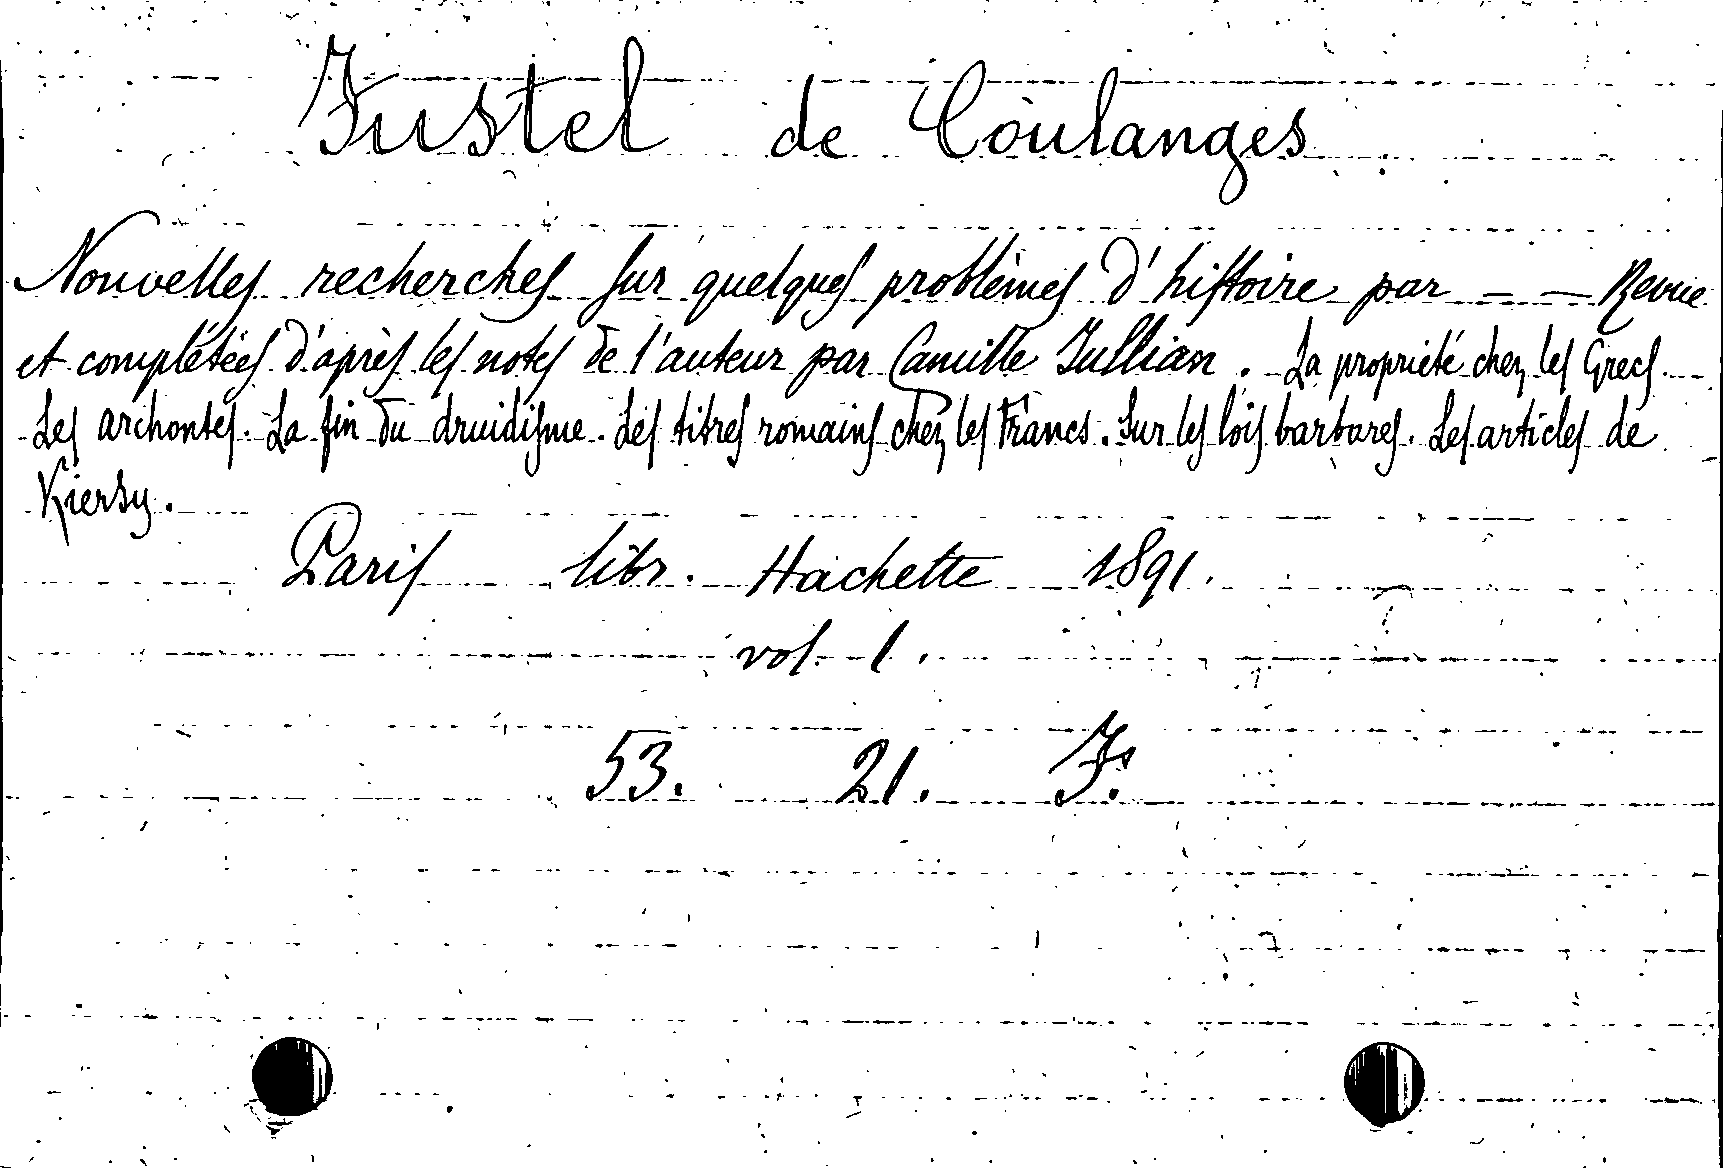 Fustel de Coulanges
Nouvelles recherches sur quelques problèmes d'histoire par _ _ Revue
et complétées d'après les notes de l'auteur par Camille Jullian. La propriété chez les Grecs.
Les archontes. La fin du druidisme. Les titres romains chez les Francs. Sur les lois barbares. Les articles de
Kiersy.
Paris libr. Hachette 1891.
vol. 1.
53. 21. F.